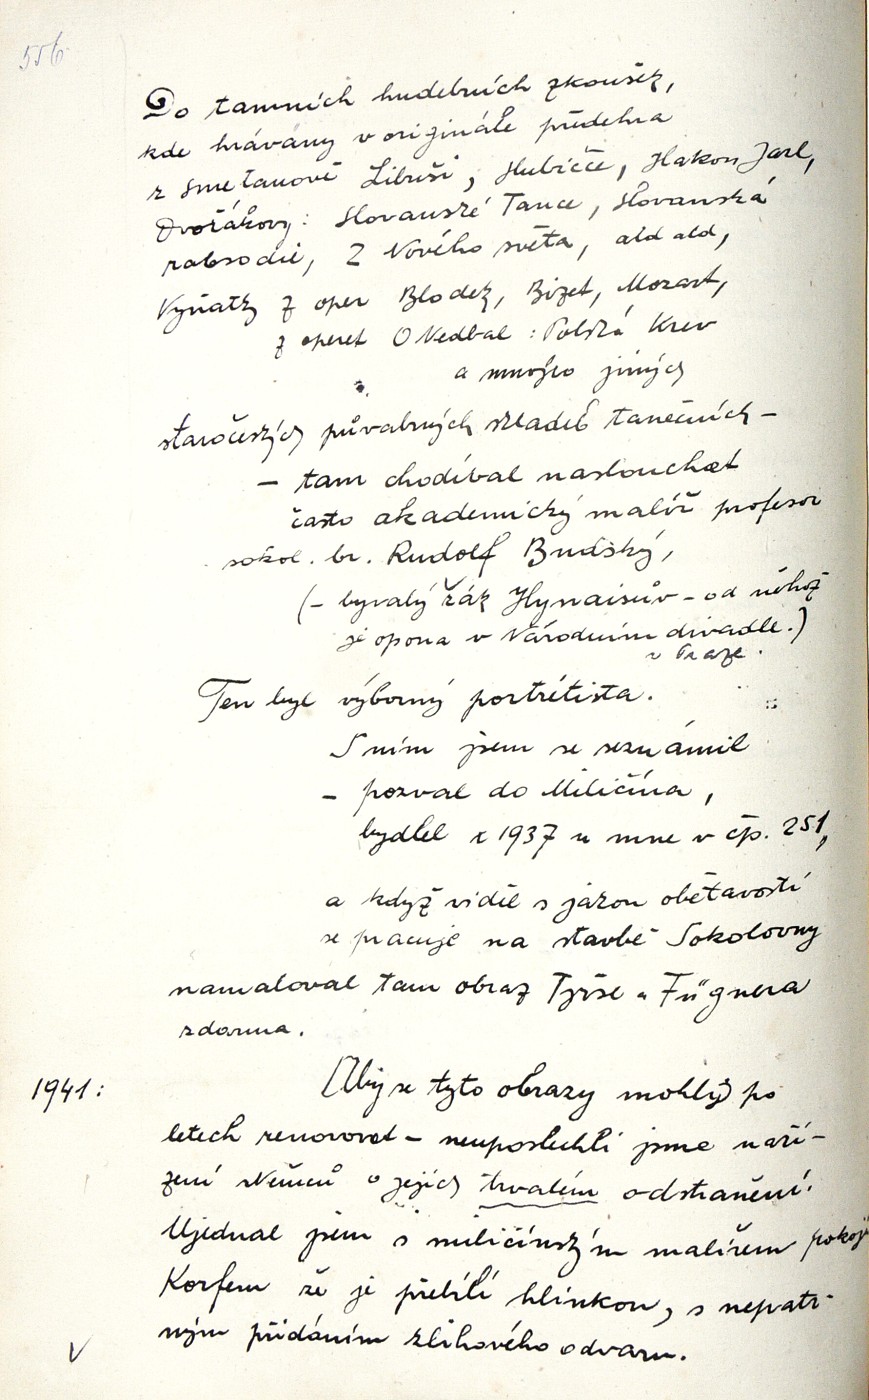 556.
Do tamních hudebních zkoušek,
kde hrávány v originále předehra
z Smetanově Libuši, Hubičce, Hakon Jarl,
Dvořákovy: Slovanské Tance, Slovanská
rabsodie, Z Nového světa, atd atd,
Výňatky z oper Blodek, Bizet, Mozart,
z operet O Nedbal: Polská Krev
a mnoho jiných
staročeských půvabných skladeb tanečních –
– tam chodíval naslouchat
často akademický malíř profesor
sokol. br. Rudolf Budský,
(– byvalý žák Hynaisův – od něhož
je opona v Národním divadle.)
v Praze.
Ten byl výborný portrétista.
S ním jsem se seznámil
– pozval do Miličína,
bydlel r 1937 u mne v čp. 251,
a když viděl s jakou obětavostí
se pracuje na stavbě Sokolovny
namaloval tam obraz Tyrše a Fügnera
zdarma.
1941: Aby se tyto obrazy mohly po
letech renovovat – neuposlechli jsme naří-
zení Němců o jejich trvalém odstranění.
Ujednal jsem s miličínským malířem pokojů
Korfem že je přebílí hlinkou, s nepatr-
ným přidáním klihového odvaru.